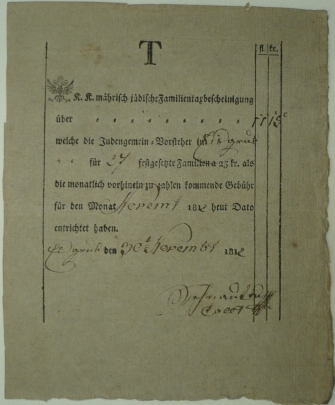 T
fl. kr.
K. K. mährisch jüdische Familientaxbescheinigung
über
welche die Judengemein-Vorsteher in
für 27 festgesetzte Familien a 25 kr. als
die monatlich vorhinein zu zahlen kommende Gebühr
für den Monat 181 heut Dato
entrichtet haben.
den 30 November 181